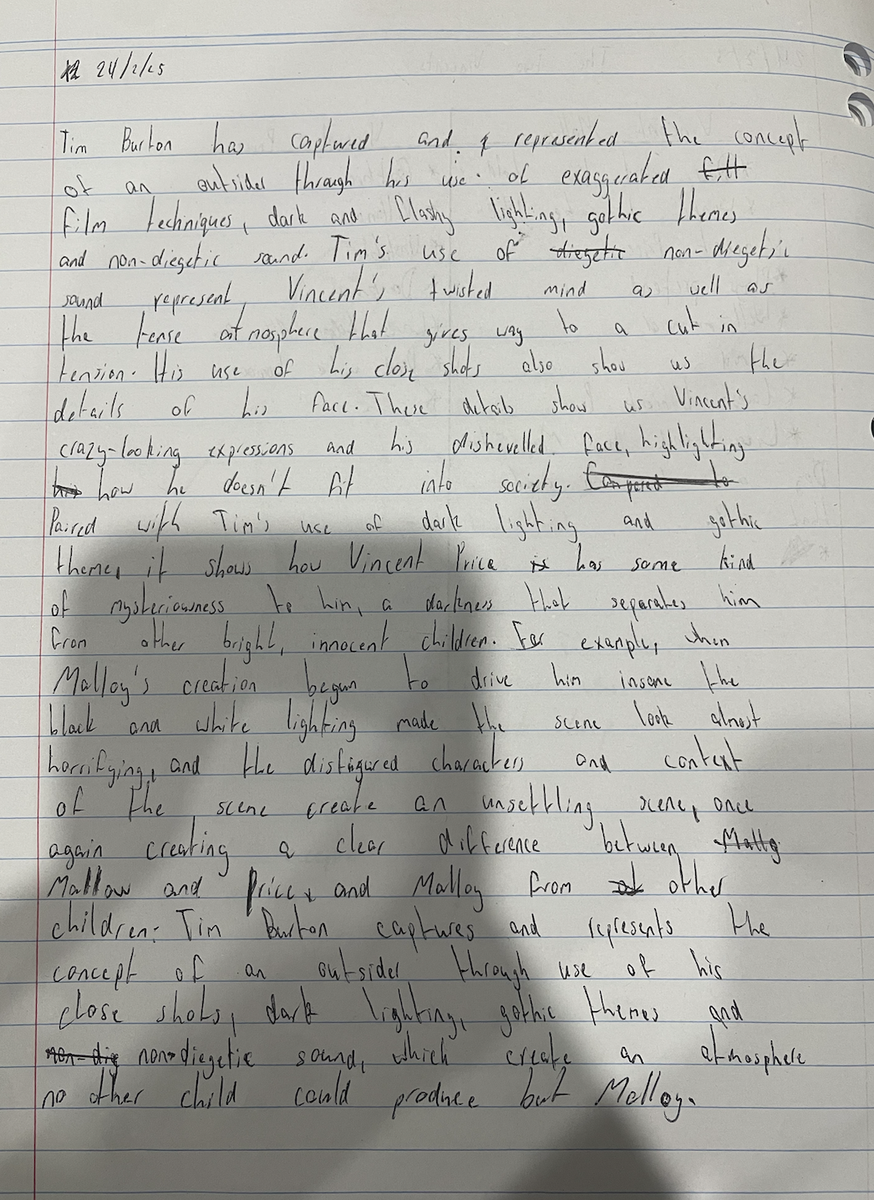 24/2/25
Tim Burton has captured and & represented the concept
of an outsider through his use of exaggerated
film techniques, dark and flashy lighting, gothic themes
and non-diegetic sound. Tim's use of diegetic non-diegetic
sound represent, Vincent's twisted mind as well as
the tense atmosphere that gives way to a cut in
tension. His use of his close shots also show us the
details of his face. These details show us Vincent's
crazy-looking expressions and his dishevelled face, highlighting
this how he doesn't fit into society. Compared to
Paired with Tim's use of dark lighting and gothic
themes it shows how Vincent Price is has some kind
of mysteriousness to him, a darkness that separates him
from other bright, innocent children. For example, when
Malloy's creation begun to drive him insane the
black and white lighting made the scene look almost
horrifying, and the disfigured characters and context
of the scene create an unsettling scene, once
again creating a clear difference between Mally
Mallow and Price, and Malloy from other
children. Tim Burton captures and represents the
concept of an outsider through use of his
close shots, dark lighting, gothic themes and
non-dig non-diegetic sound, which create an atmosphere
no other child could produce but Malloy.